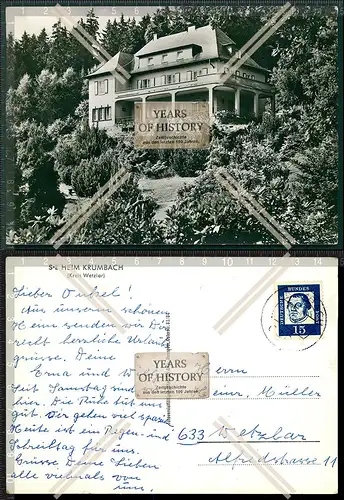 YEARS
OF HISTORY
Zeitgeschichte
aus den letzten 100 Jahren
S-E HEIM KRUMBACH
(Kreis Wetzlar)
Lieber Onkel!
Aus unserem schönen
Heim senden wir Dir
recht herzliche Urlaubs
grüsse. Deine
Erna und
Seit Samstag sind
hier. Die Ruhe tut uns
gut. Wir gehen viel spazie
Heute ist ein Regen- und
Schreibtag für uns.
Grüsse Deine Lieben
alle vielmals von
uns.
DEUTSCHE BUNDESPOST
15
YEARS
OF HISTORY
Zeitgeschichte
aus den letzten 100 Jahren
Herrn
Heinr. Müller
633 Wetzlar
Alfredstrasse 11